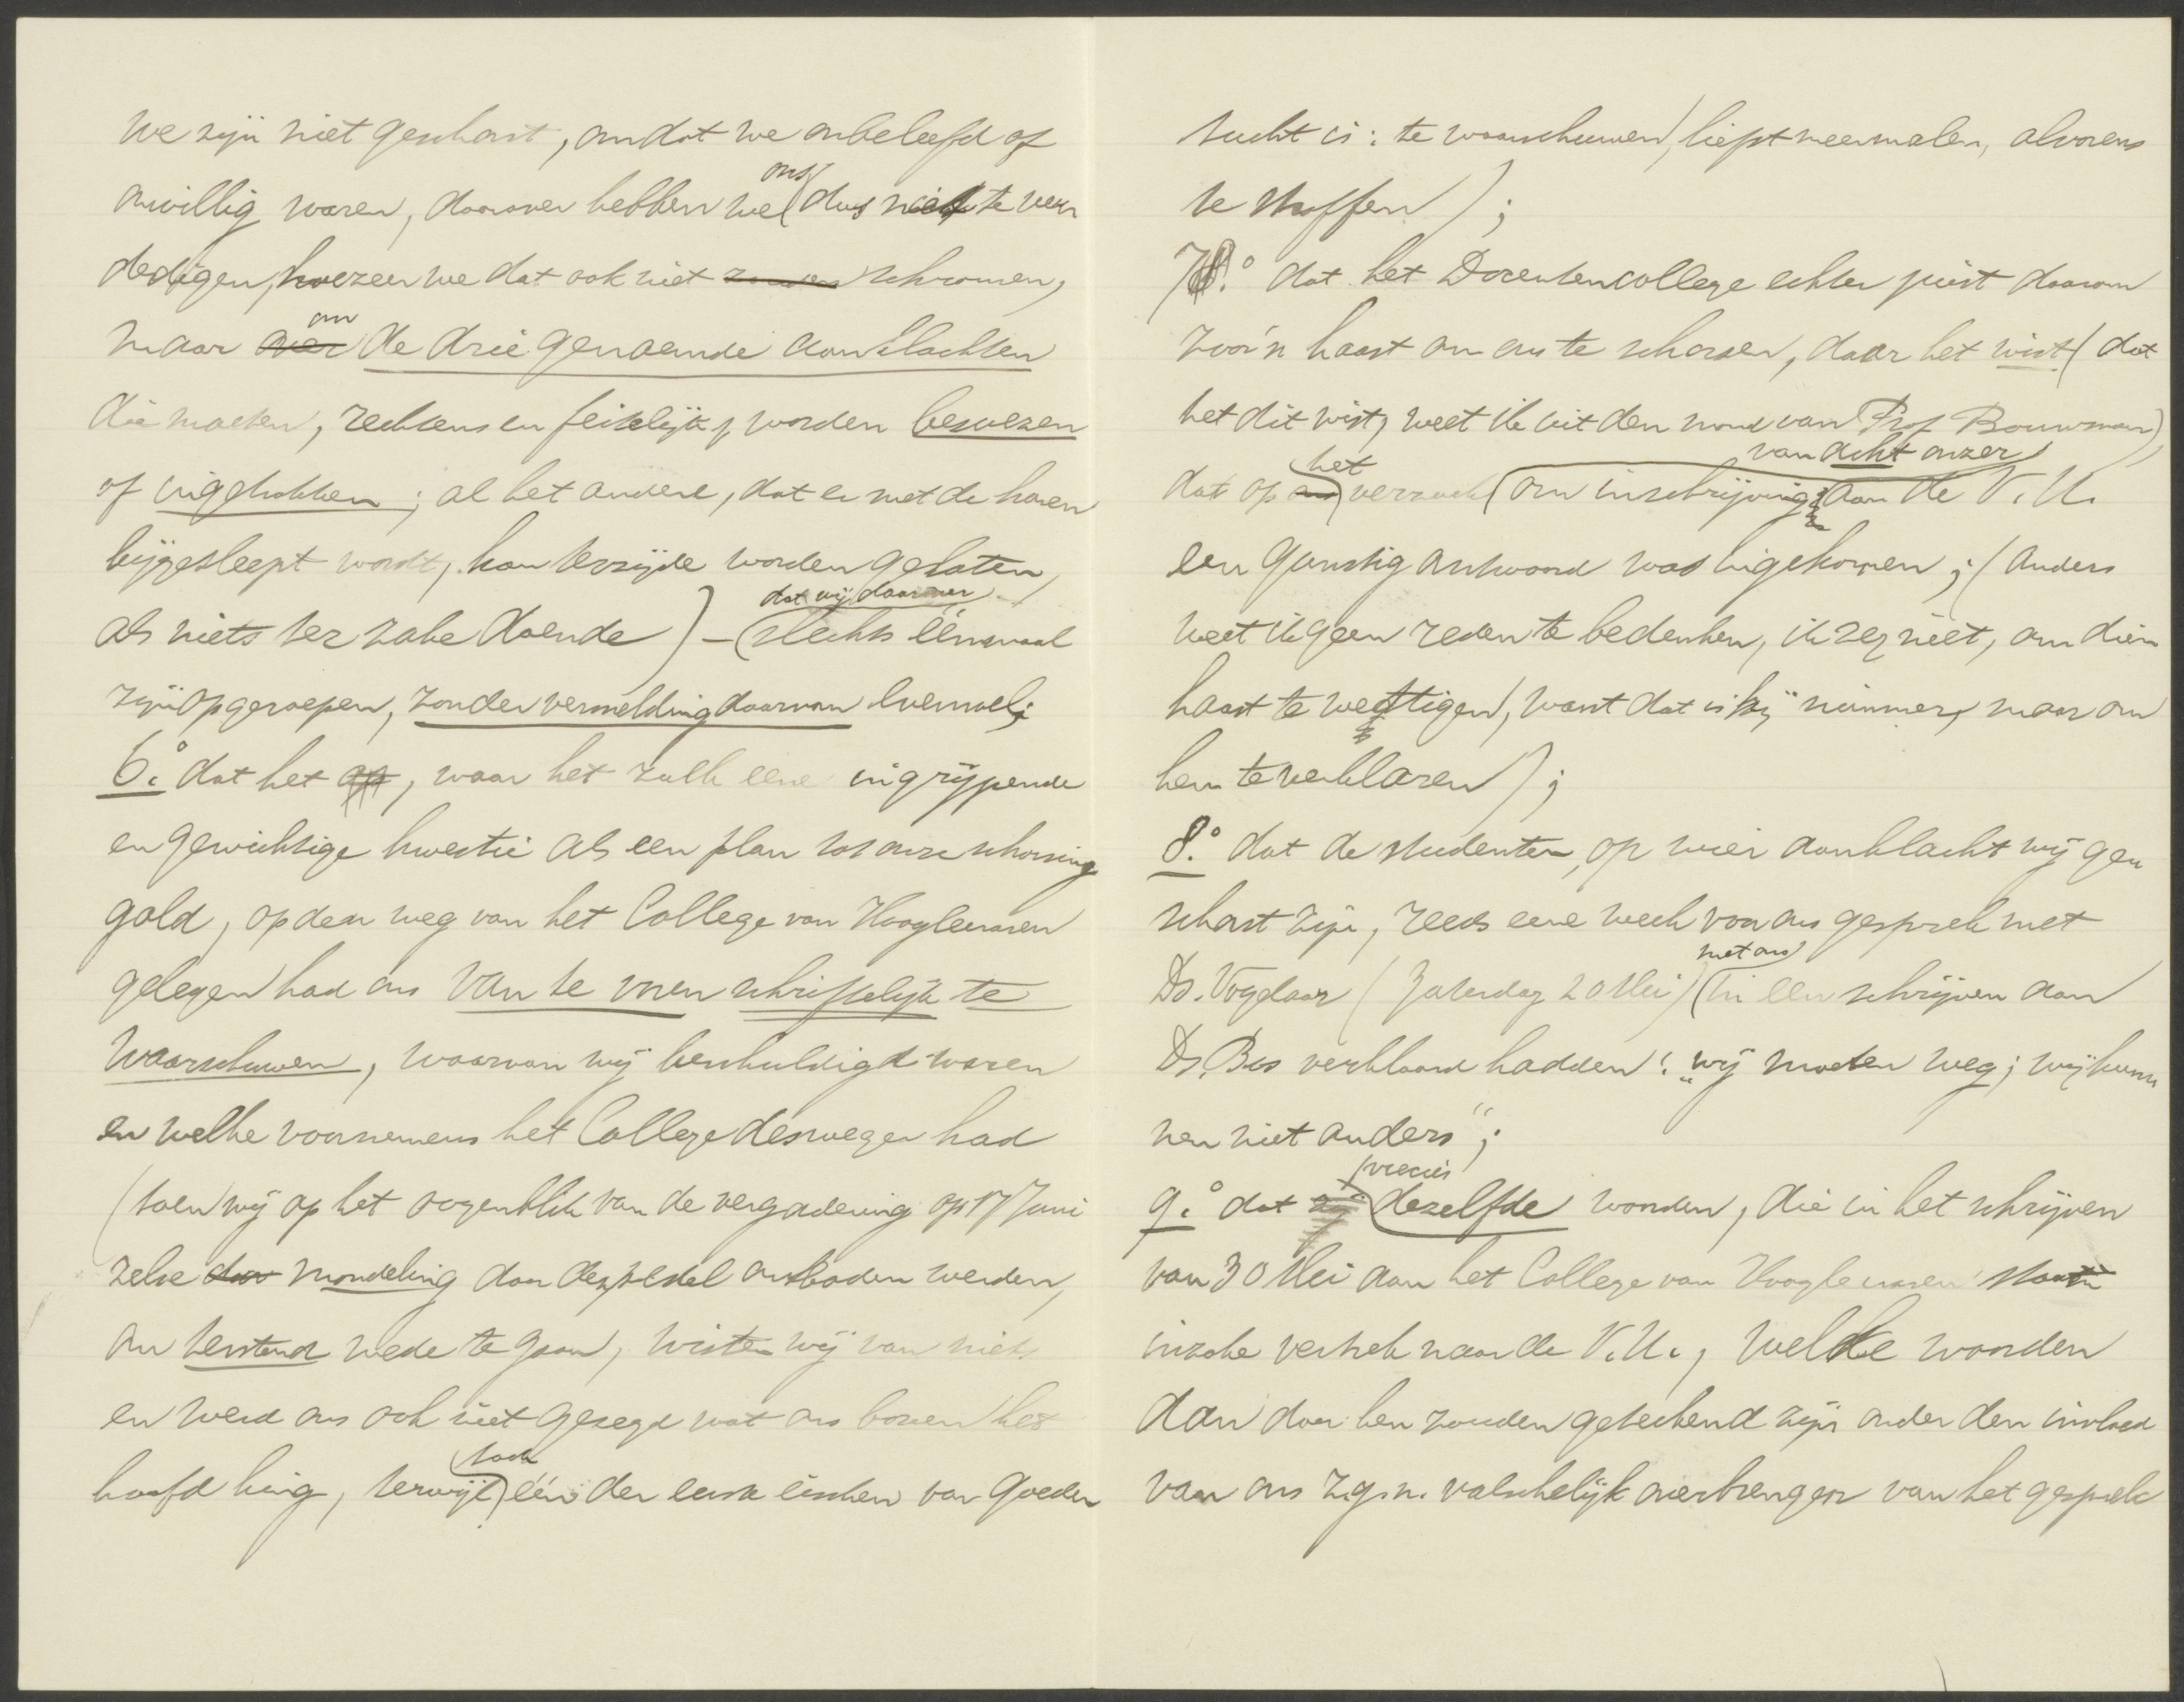 we zijn niet geschorst, omdat we onbeleefd of
onwillig waren, daarover hebben we ons dus niet te ver
dedigen, hoezeer we dat ook niet zouden schromen,
maar over om de drie genoemde aanklachten
die moeten, rechtens en feitelijk, worden bewezen
of ingetrokken; al het andere, dat er met de haren
bijgesleept wordt, kan terzijde worden gelaten,
als niets ter zake doende) – dat wij daarover slechts éénmaal
zijn opgeroepen, zonder vermelding daarvan evenwel;
6.° dat het, waar het zulk eene ingrijpende
en gewichtige kwestie als een plan tot onze schorsing
gold, op den weg van het College van Hoogleeraren
gelegen had ons van te voren schriftelijk te
waarschuwen, waarvan wij beschuldigd waren
en welke voornemens het College deswegen had
(toen wij op het oogenblik van de vergadering op 17 Juni
zelve door mondeling door den pedel ontboden werden,
om terstond mede te gaan, wisten wij van niets
en werd ons ook niet gezegd wat ons boven het
hoofd hing, terwijl toch één der eerste eischen van goede
tucht is: te waarschuwen, liefst meermalen, alvorens
te straffen);
7.° dat het Docentencollege echter juist daarom
zoo'n haast om ons te schorsen, daar het wist (dat
het dit wist, weet ik uit den mond van Prof. Bouwman)
dat op ons het verzoek van acht onzer om inschrijving aan de V.U.
een gunstig antwoord was ingekomen; (anders
weet ik geen reden te bedenken, ik zeg niet, om dien
haast te wettigen, want dat is hij nimmer, maar om
hem te verklaren);
8.° dat de studenten, op wier aanklacht wij ge
schorst zijn, reeds eene week voor ons gesprek met
Ds. Vogelaar (Zaterdag 20 Mei) met ons in een schrijven aan
Ds. Bos verklaard hadden: „wij moeten weg; wij kun
nen niet anders";
9.° dat zij precies dezelfde woorden, die in het schrijven
van 30 Mei aan het College van Hoogleeraren staan
inzake vertrek naar de V.U., welke woorden
dan door hen zouden geteekend zijn onder den invloed
van ons z.g.n. valschelijk overbrengen van het gesprek